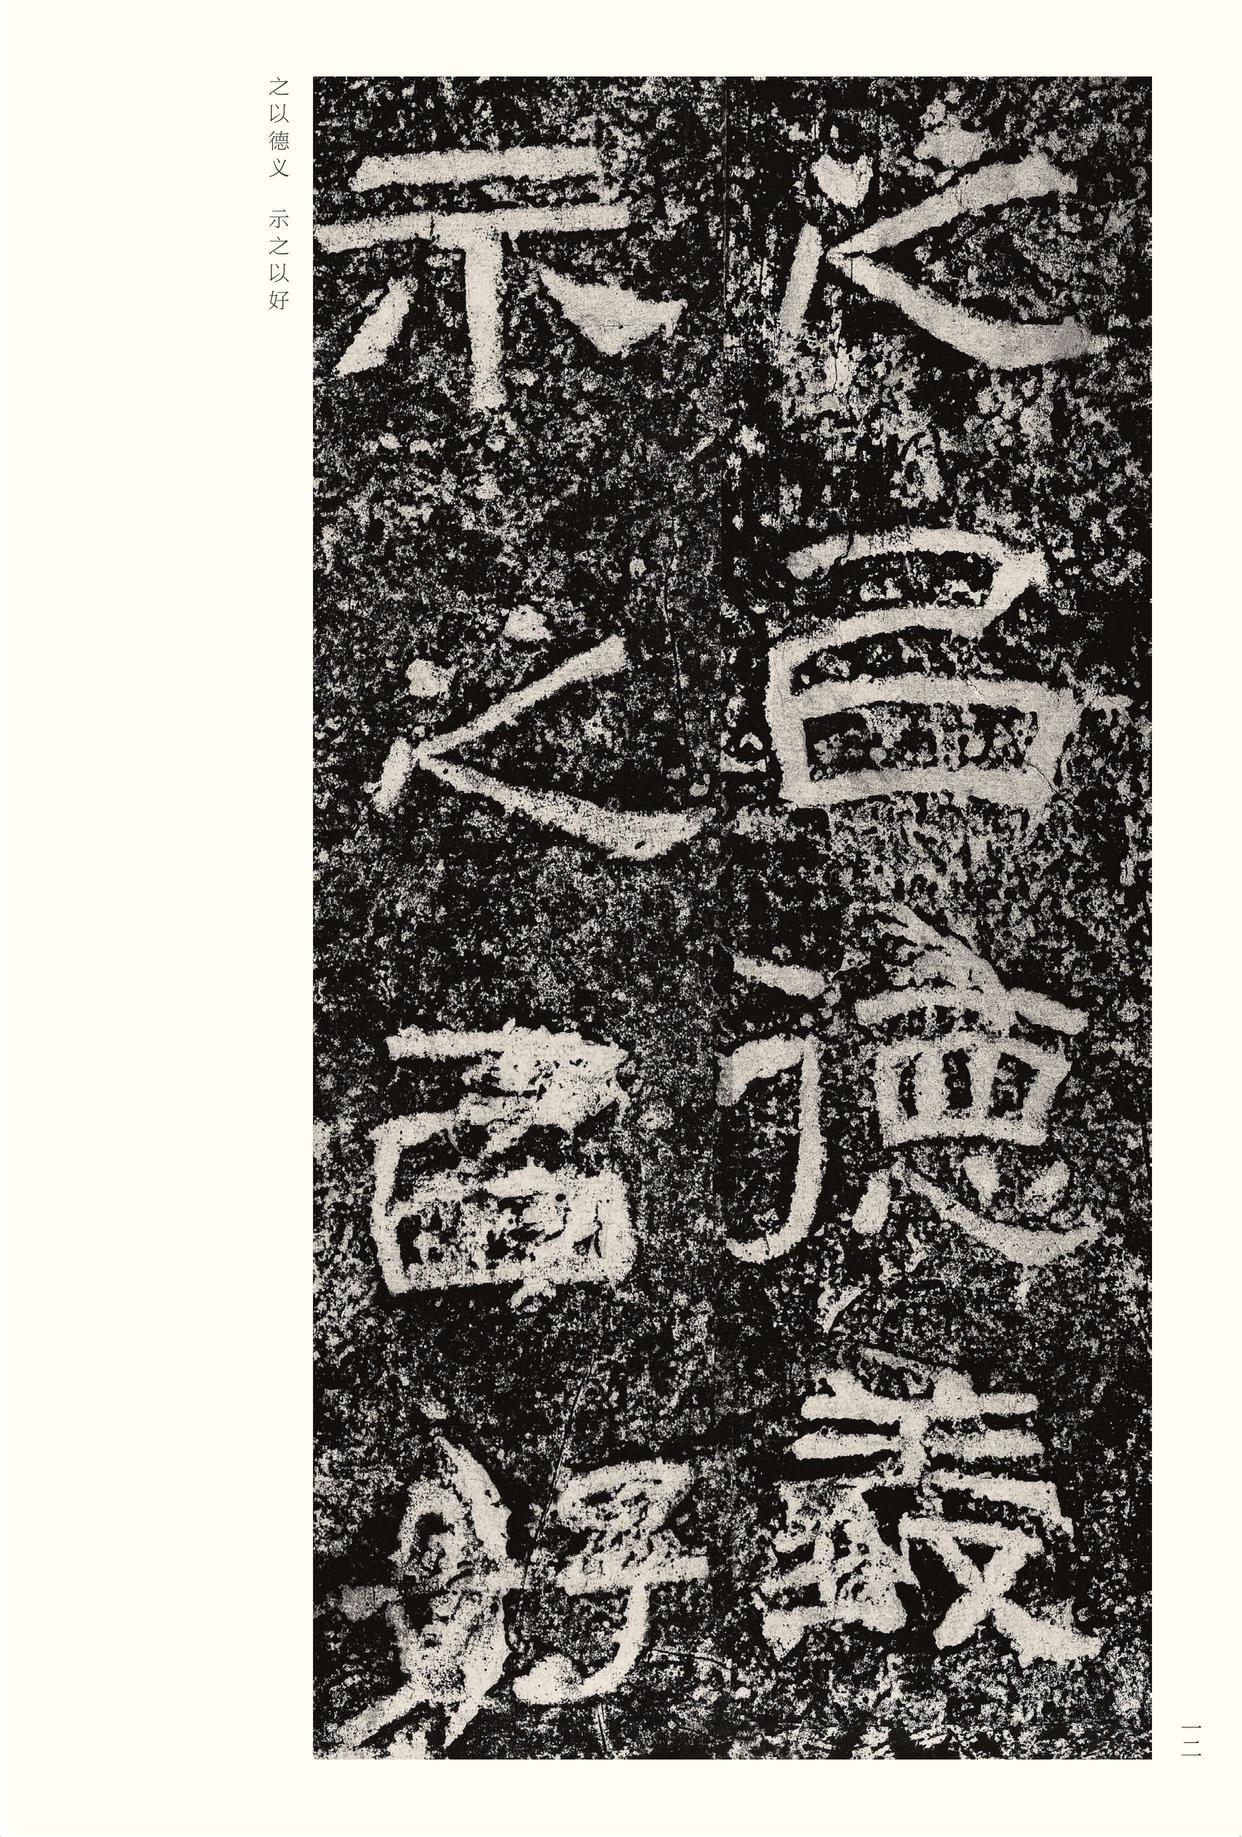 之㠯德義
示之㠯好
之以德义　示之以好
一二